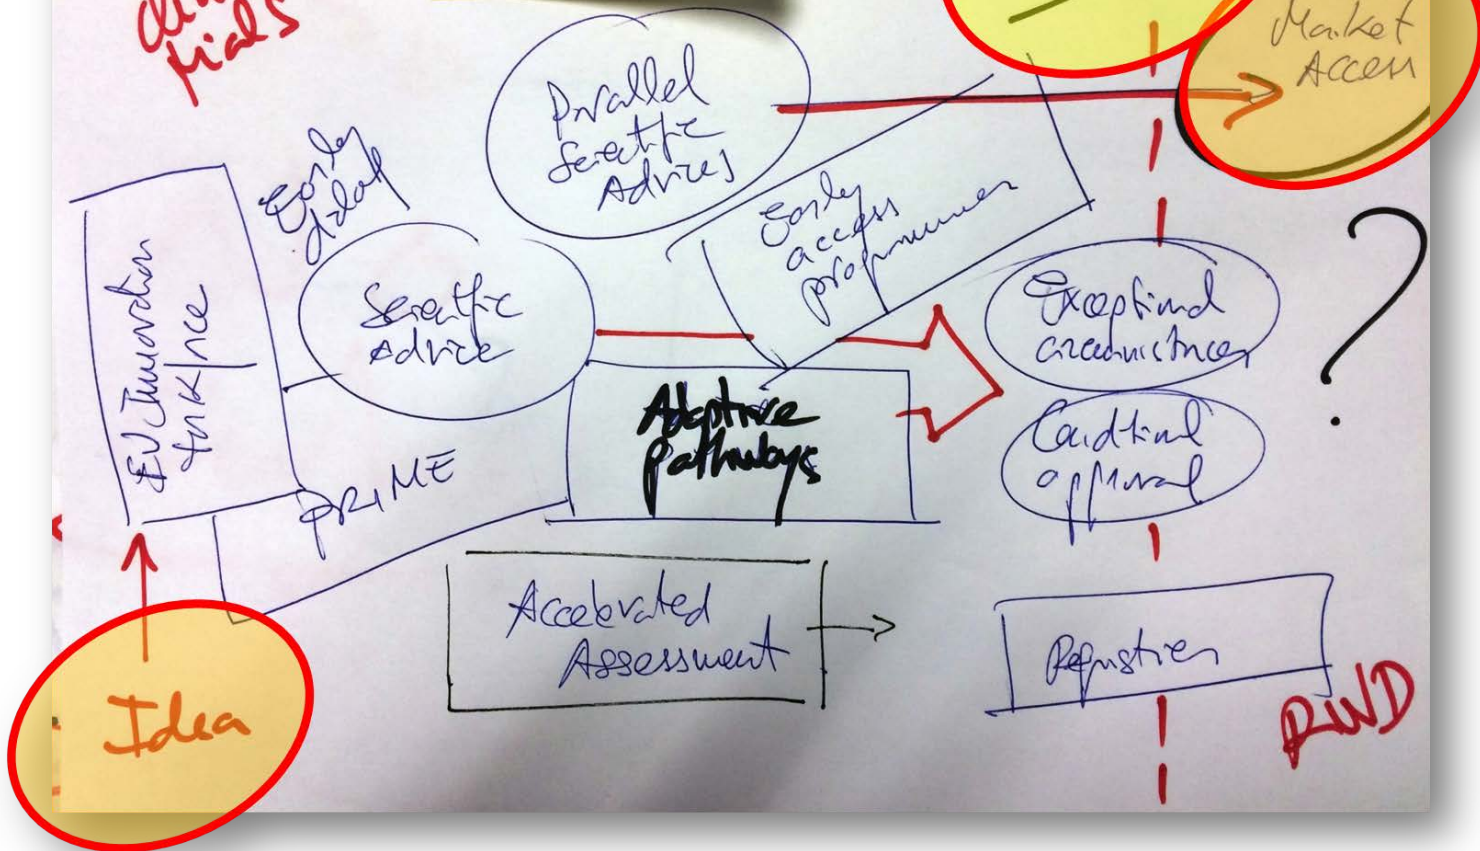 trials
Market
Access
Parallel
Scientific
Advices
Early
dialog
Early
access
programmes
EU Innovation
task force
Scientific
Advice
Exceptional
circumstances
?
Adaptive
pathways
Conditional
approval
PRIME
Accelerated
Assessment
Registries
RWD
Idea